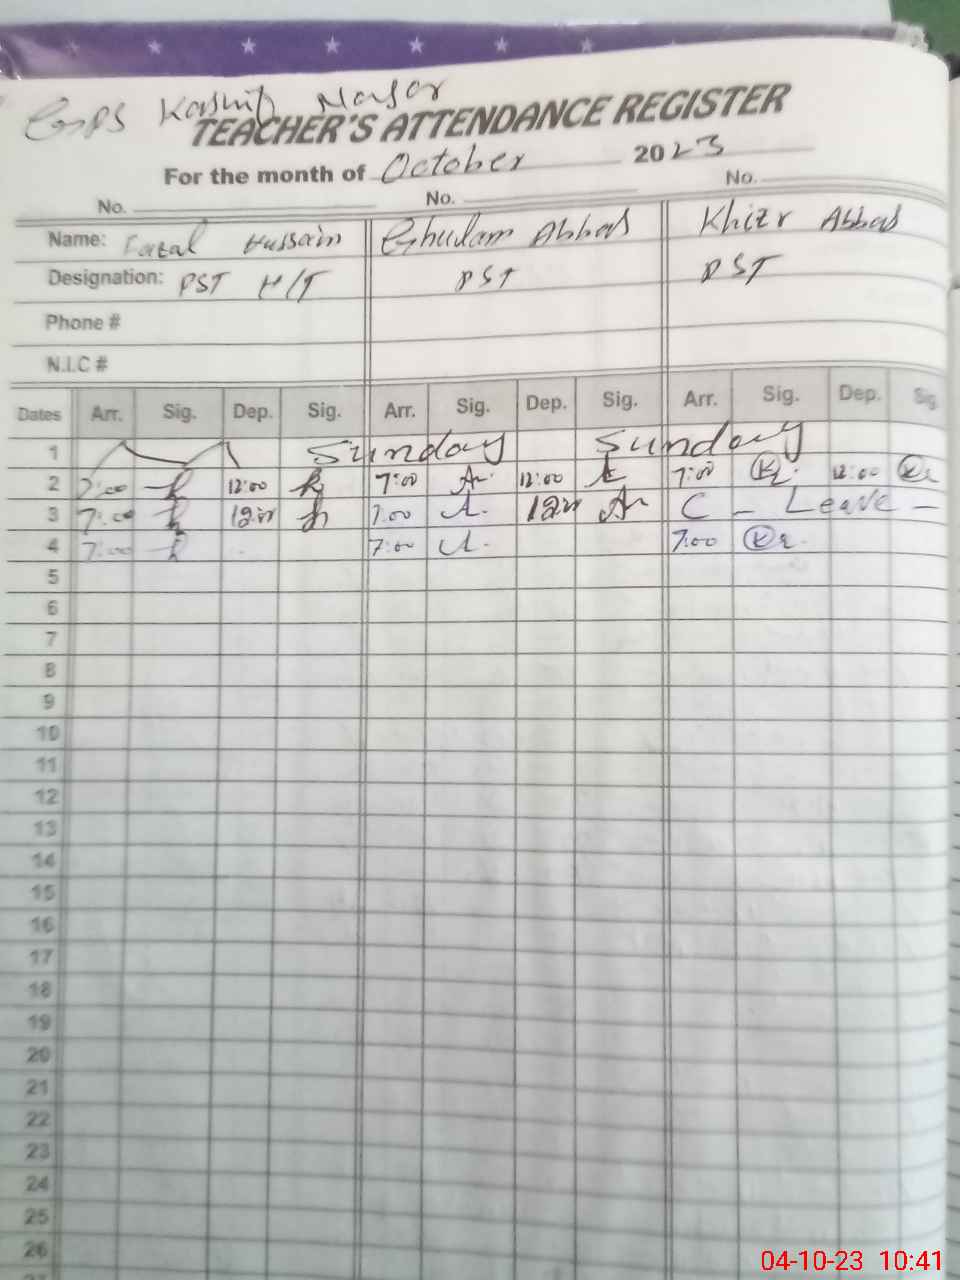 GPS Kashif Nasar
TEACHER'S ATTENDANCE REGISTER
For the month of October 2023
No. No. No.
Name: Fazal Hussain Ghulam Abbas Khizr Abbas
Designation: PST H/T PST PST
Phone #
N.I.C #
Dates Arr. Sig. Dep. Sig. Arr. Sig. Dep. Sig. Arr. Sig. Dep. Sig.
1 Sunday Sunday
2 7:00 12:00 7:00 12:00 7:00 12:00
3 7:00 1200 7:00 1200 C - Leave -
4 7:00 7:00 7:00
5
6
7
8
9
10
11
12
13
14
15
16
17
18
19
20
21
22
23
24
25
26
04-10-23 10:41